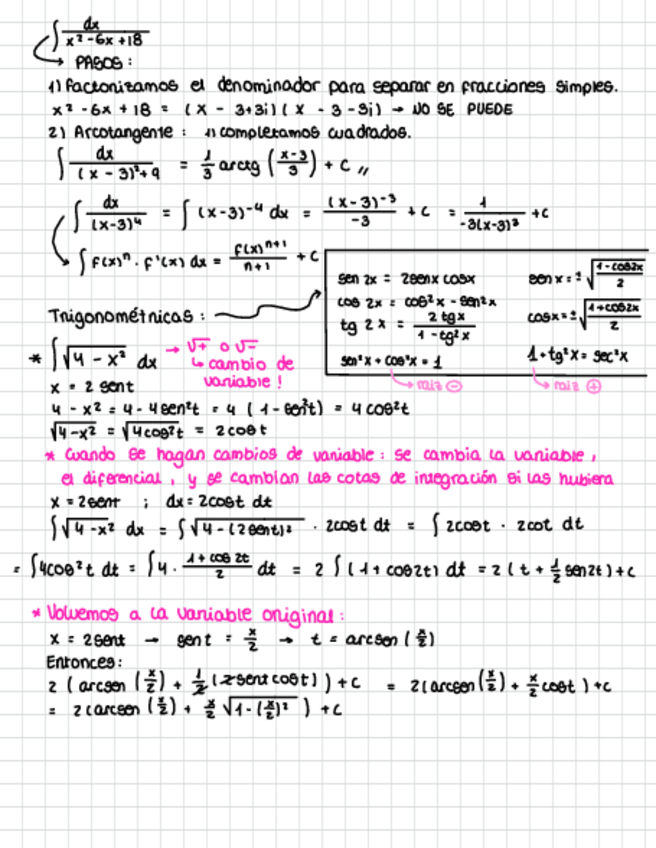 ∫ dx / (x² - 6x + 18)
PASOS:
1) Factorizamos el denominador para separar en fracciones simples.
x² - 6x + 18 = (x - 3+3i)(x - 3 - 3i) → NO SE PUEDE
2) Arcotangente: 1) completamos cuadrados.
∫ dx / ((x - 3)²+9) = 1/3 arctg ((x-3)/3) + C //
∫ dx / (x-3)⁴ = ∫ (x-3)⁻⁴ dx = (x-3)⁻³ / -3 + C = 1 / -3(x-3)³ + C
∫ f(x)ⁿ · f'(x) dx = f(x)ⁿ⁺¹ / n+1 + C
Trigonométricas:
sen 2x = 2senx cosx
cos 2x = cos²x - sen²x
tg 2x = 2 tgx / 1 - tg²x
sen²x + cos²x = 1
raiz ⊖
sen x = ± √(1 - cos2x / 2)
cosx = ± √(1 + cos2x / 2)
1 + tg²x = sec²x
raiz ⊕
* ∫ √(4 - x²) dx → √+ o √-
↳ cambio de
variable!
x = 2 sent
4 - x² = 4 - 4sen²t = 4 (1 - sen²t) = 4 cos²t
√(4-x²) = √(4cos²t) = 2cost
* Cuando se hagan cambios de variable: se cambia la variable,
el diferencial, y se cambian las cotas de integración si las hubiera
x = 2sent ; dx = 2cost dt
∫ √(4-x²) dx = ∫ √(4 - (2sent)²) · 2cost dt = ∫ 2cost · 2cot dt
= ∫4cos²t dt = ∫4 · (1 + cos 2t)/2 dt = 2 ∫ (1 + cos2t) dt = 2 (t + 1/2 sen2t) + C
* Volvemos a la variable original:
x = 2sent → sen t = x/2 → t = arcsen (x/2)
Entonces:
2 (arcsen (x/2) + 1/2 (2sent cost)) + C = 2(arcsen(x/2) + x/2 cost) + C
= 2(arcsen (x/2) + x/2 √(1-(x/2)²)) + C